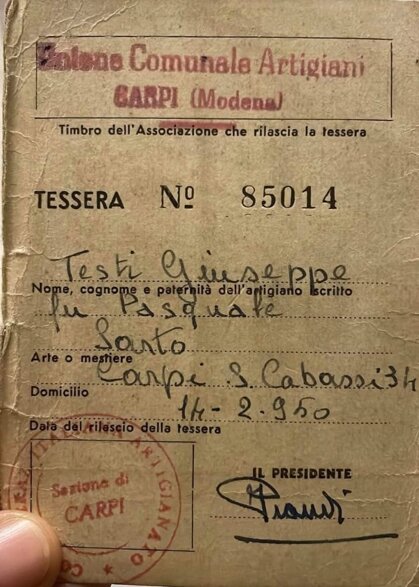 Unione Comunale Artigiani
CARPI (Modena)
Timbro dell'Associazione che rilascia la tessera
TESSERA Nº 85014
Testi Giuseppe
Nome, cognome e paternità dell'artigiano iscritto
fu Pasquale
Sarto
Arte o mestiere
Carpi S. Cabassi 34
Domicilio
14-2-950
Data del rilascio della tessera
ARTIGIANATO
Sezione di
CARPI
IL PRESIDENTE